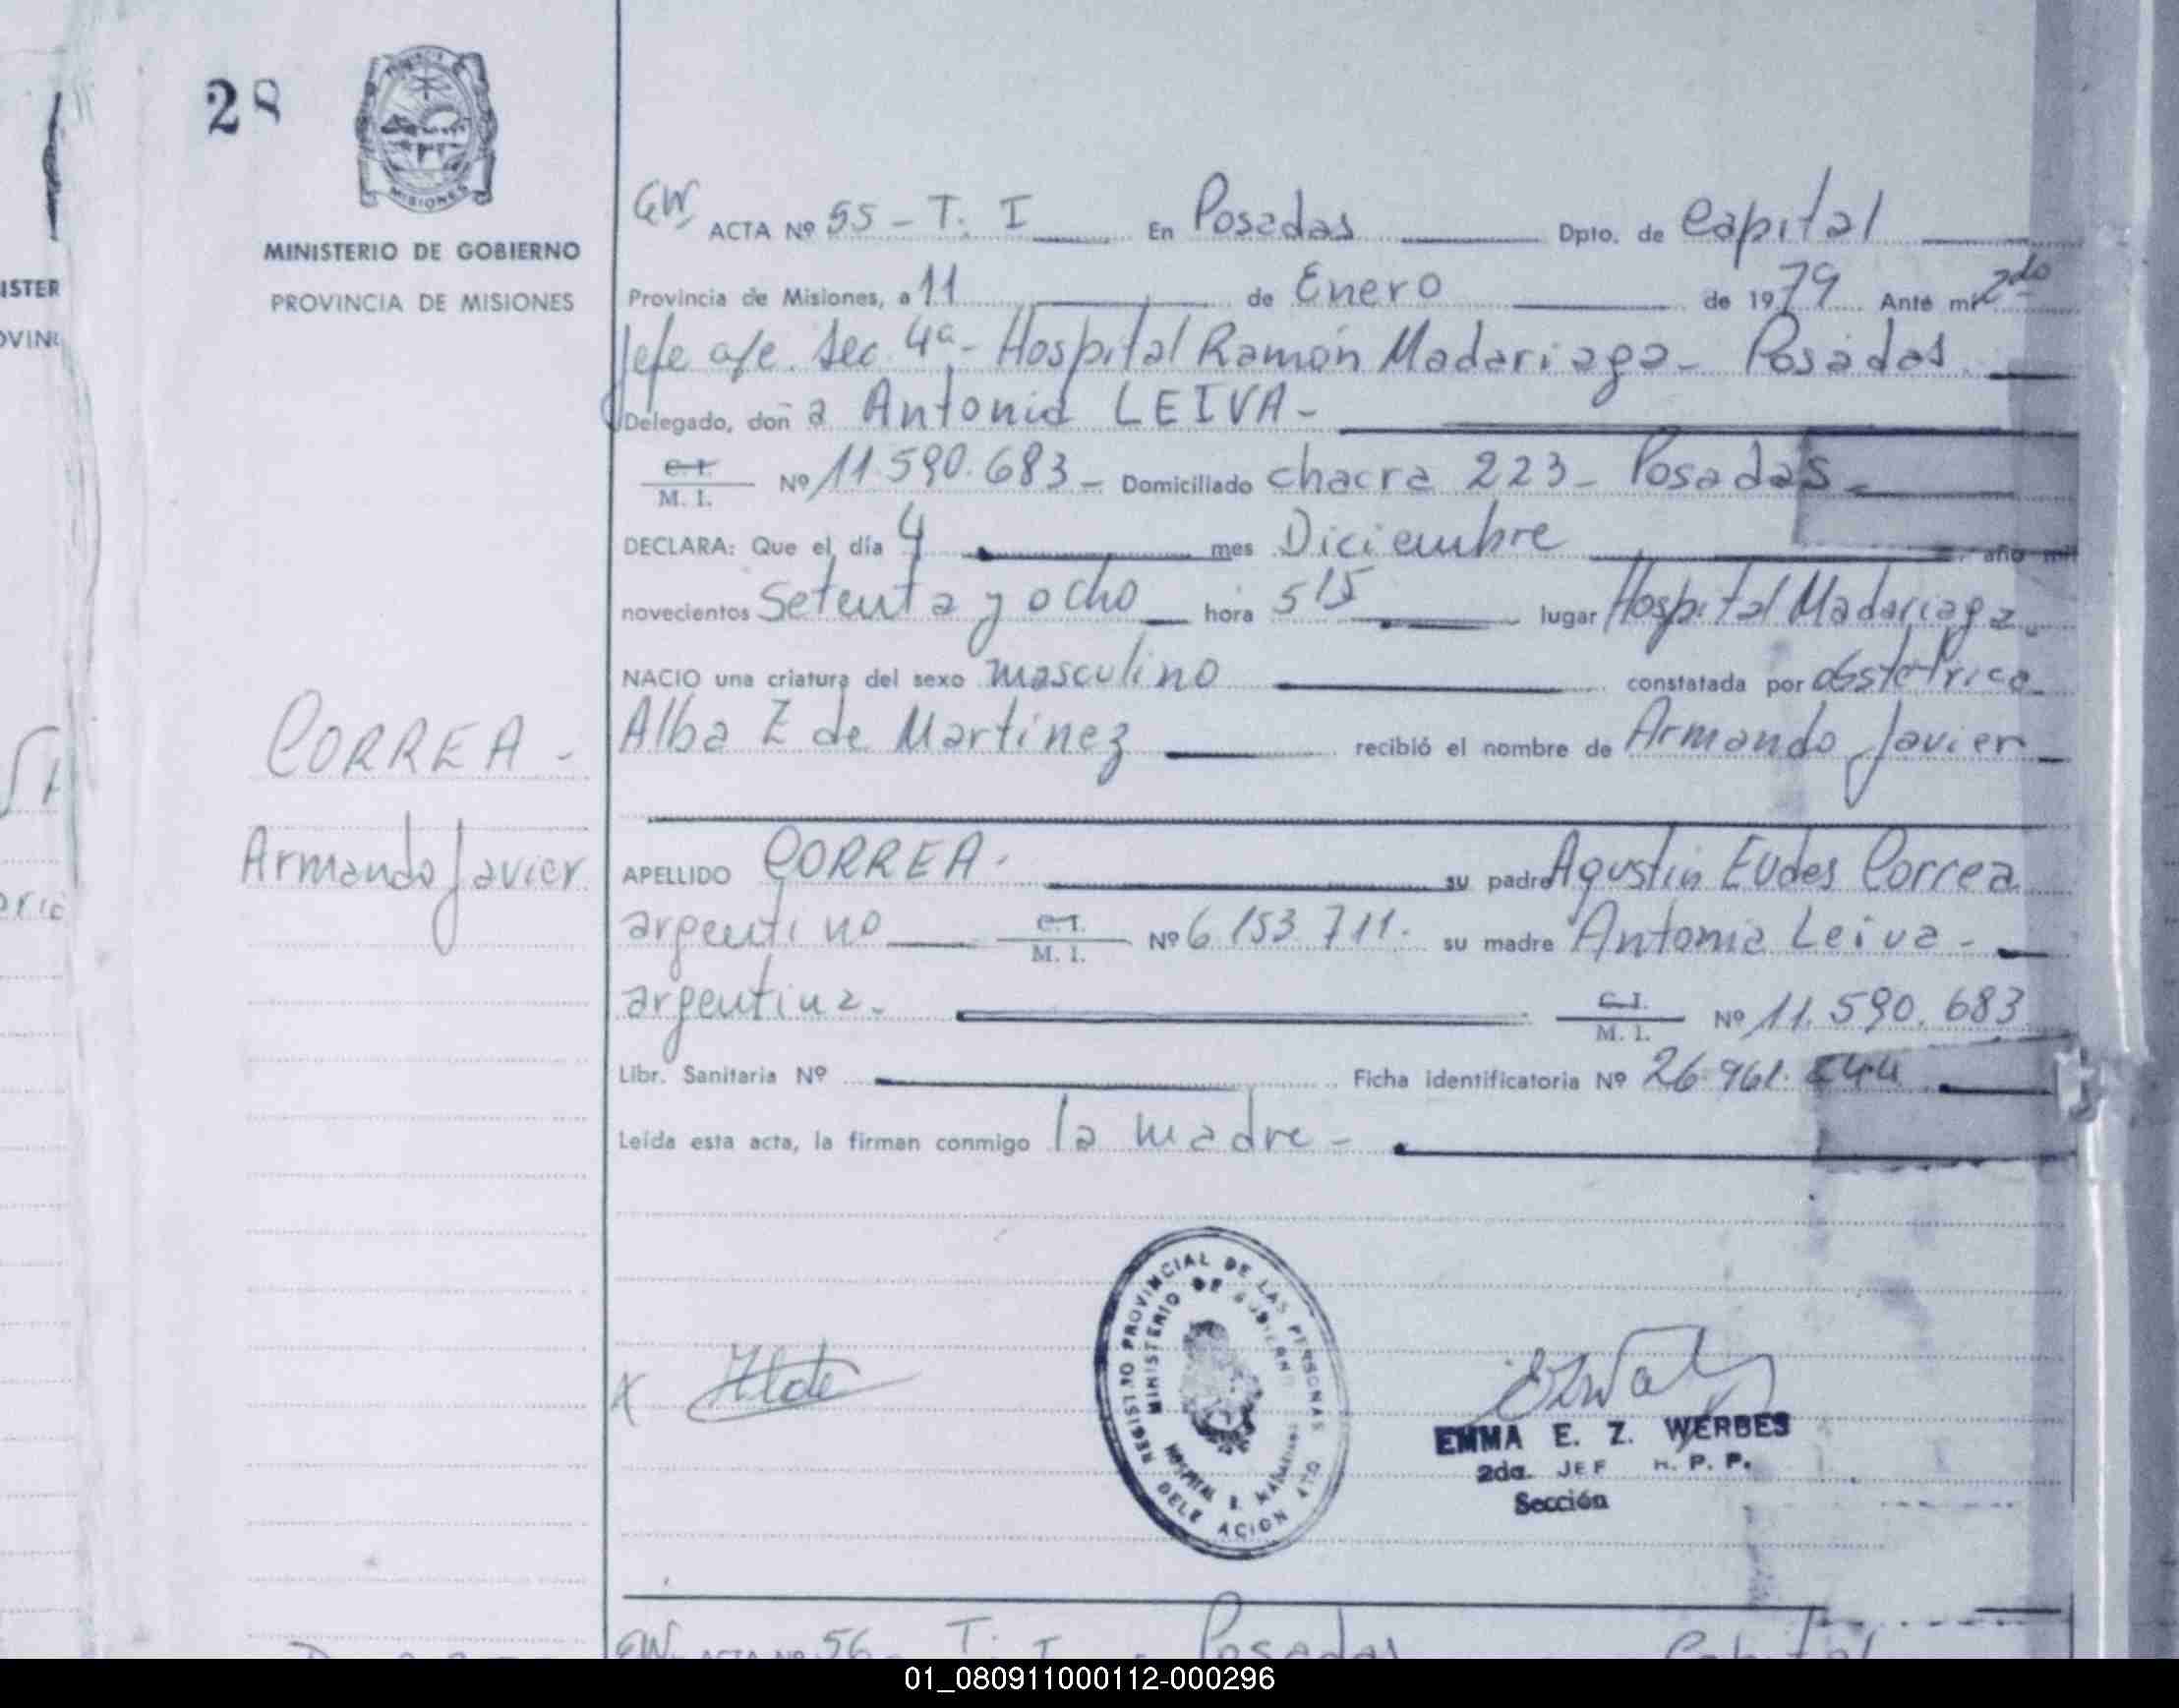 28
PROVINCIA DE
MISIONES
MINISTERIO DE GOBIERNO
PROVINCIA DE MISIONES
ISTER
OVIN
GW ACTA Nº 55 - T. I En Posadas Dpto. de Capital
Provincia de Misiones, a 11 de Enero de 1979 Anté mí 2do
Jefe a/c. Sec. 4a - Hospital Ramón Madariaga - Posadas
Delegado, doña Antonia LEIVA -
C.I. / M. I. Nº 11.590.683 - Domiciliado chacra 223 - Posadas -
DECLARA: Que el día 4 mes Diciembre año mil
novecientos setenta y ocho hora 515 lugar Hospital Madariaga.
NACIO una criatura del sexo masculino constatada por obstétrica
CORREA -
Alba Z de Martinez recibió el nombre de Armando Javier
Armando Javier
APELLIDO CORREA. su padre Agustin Eudes Correa
argentino C.I. / M. I. Nº 6 153 711. su madre Antonia Leiva -
argentina - C.I. / M. I. Nº 11.590.683
Libr. Sanitaria Nº Ficha identificatoria Nº 26.961.544
Leída esta acta, la firman conmigo la madre -
REGISTRO PROVINCIAL DE LAS PERSONAS
MINISTERIO DE GOBIERNO
HOSPITAL R. MADARIAGA
DELEGACION
X
EMMA E. Z. WERBES
2da. JEF R. P. P.
Sección
GW ACTA Nº 56 - T. I Posadas Capital
01_080911000112-000296